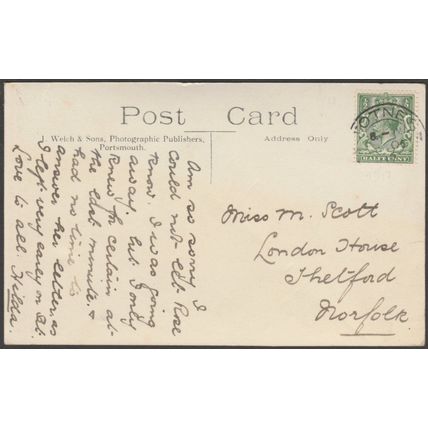 Post Card
J. Welch & Sons, Photographic Publishers,
Portsmouth.
Address Only
HALFPENNY
Am so sorry I
could not let Rose
know. I was going
away. but I only
knew for certain at
the last minute. &
had no time to
answer her letter, as
I left very early on Sat.
Love to all. Hilda.
Miss M. Scott
London House
Thetford
Norfolk